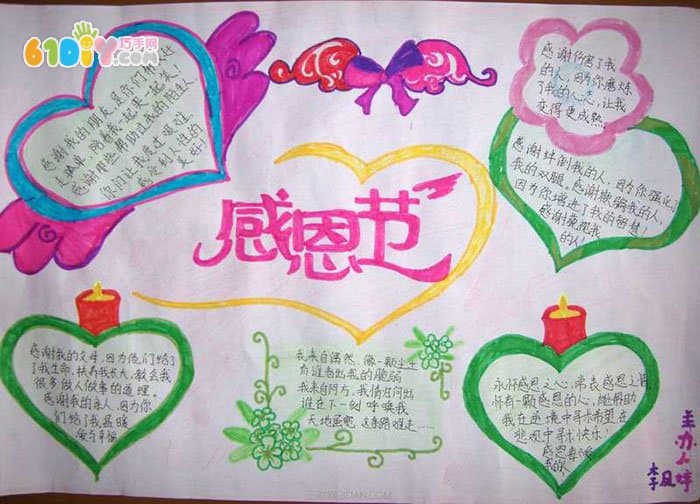 61DiY巧手网
感谢我的朋友,是你们帮我赶
走孤单,陪着我一起哭一起笑!
感谢那些帮助过我的陌生人,
你们让我度过艰难,
感受到人性的
美好!
感谢伤害了我
的人,因为你磨炼
了我的心志,让我
变得更成熟。
感谢绊倒我的人,因为你强化了
我的双腿。感谢欺骗我的人,
因为你增进了我的智慧!
感谢藐视我
的人!
感恩节
感谢我的父母,因为他们给
了我生命,抚养我长大,教会我
很多做人做事的道理。
感谢我的亲人,因为你
们给了我温暖
我来自偶然,像一颗尘土
有谁看出我的脆弱
我来自何方,我情归何处
谁在下一刻呼唤我
天地虽宽,这条路难走……
永怀感恩之心,常表感恩之情
怀有一颗感恩的心,能帮助
我在逆境中寻求希望,在
悲观中寻求快乐!
主办人
李凤婷